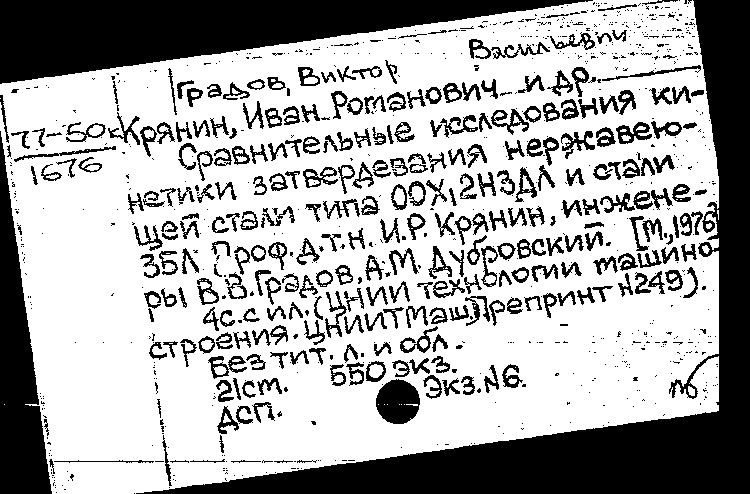 Градов, Виктор Васильевич
77-50к
1676
Крянин, Иван Романович и др.
Сравнительные исследования ки-
нетики затвердевания нержавею-
щей стали типа 00Х12Н3ДЛ и стали
35Л Проф. д.т.н. И.Р. Крянин, инжене-
ры В.В. Градов, А.М. Дубровский. [М., 1976]
4с. с ил. (ЦНИИ технологии машино-
строения. ЦНИИТМаш) Препринт №249).
Без тит. л. и обл.
21см. 550 экз.
ДСП. Экз. №6.